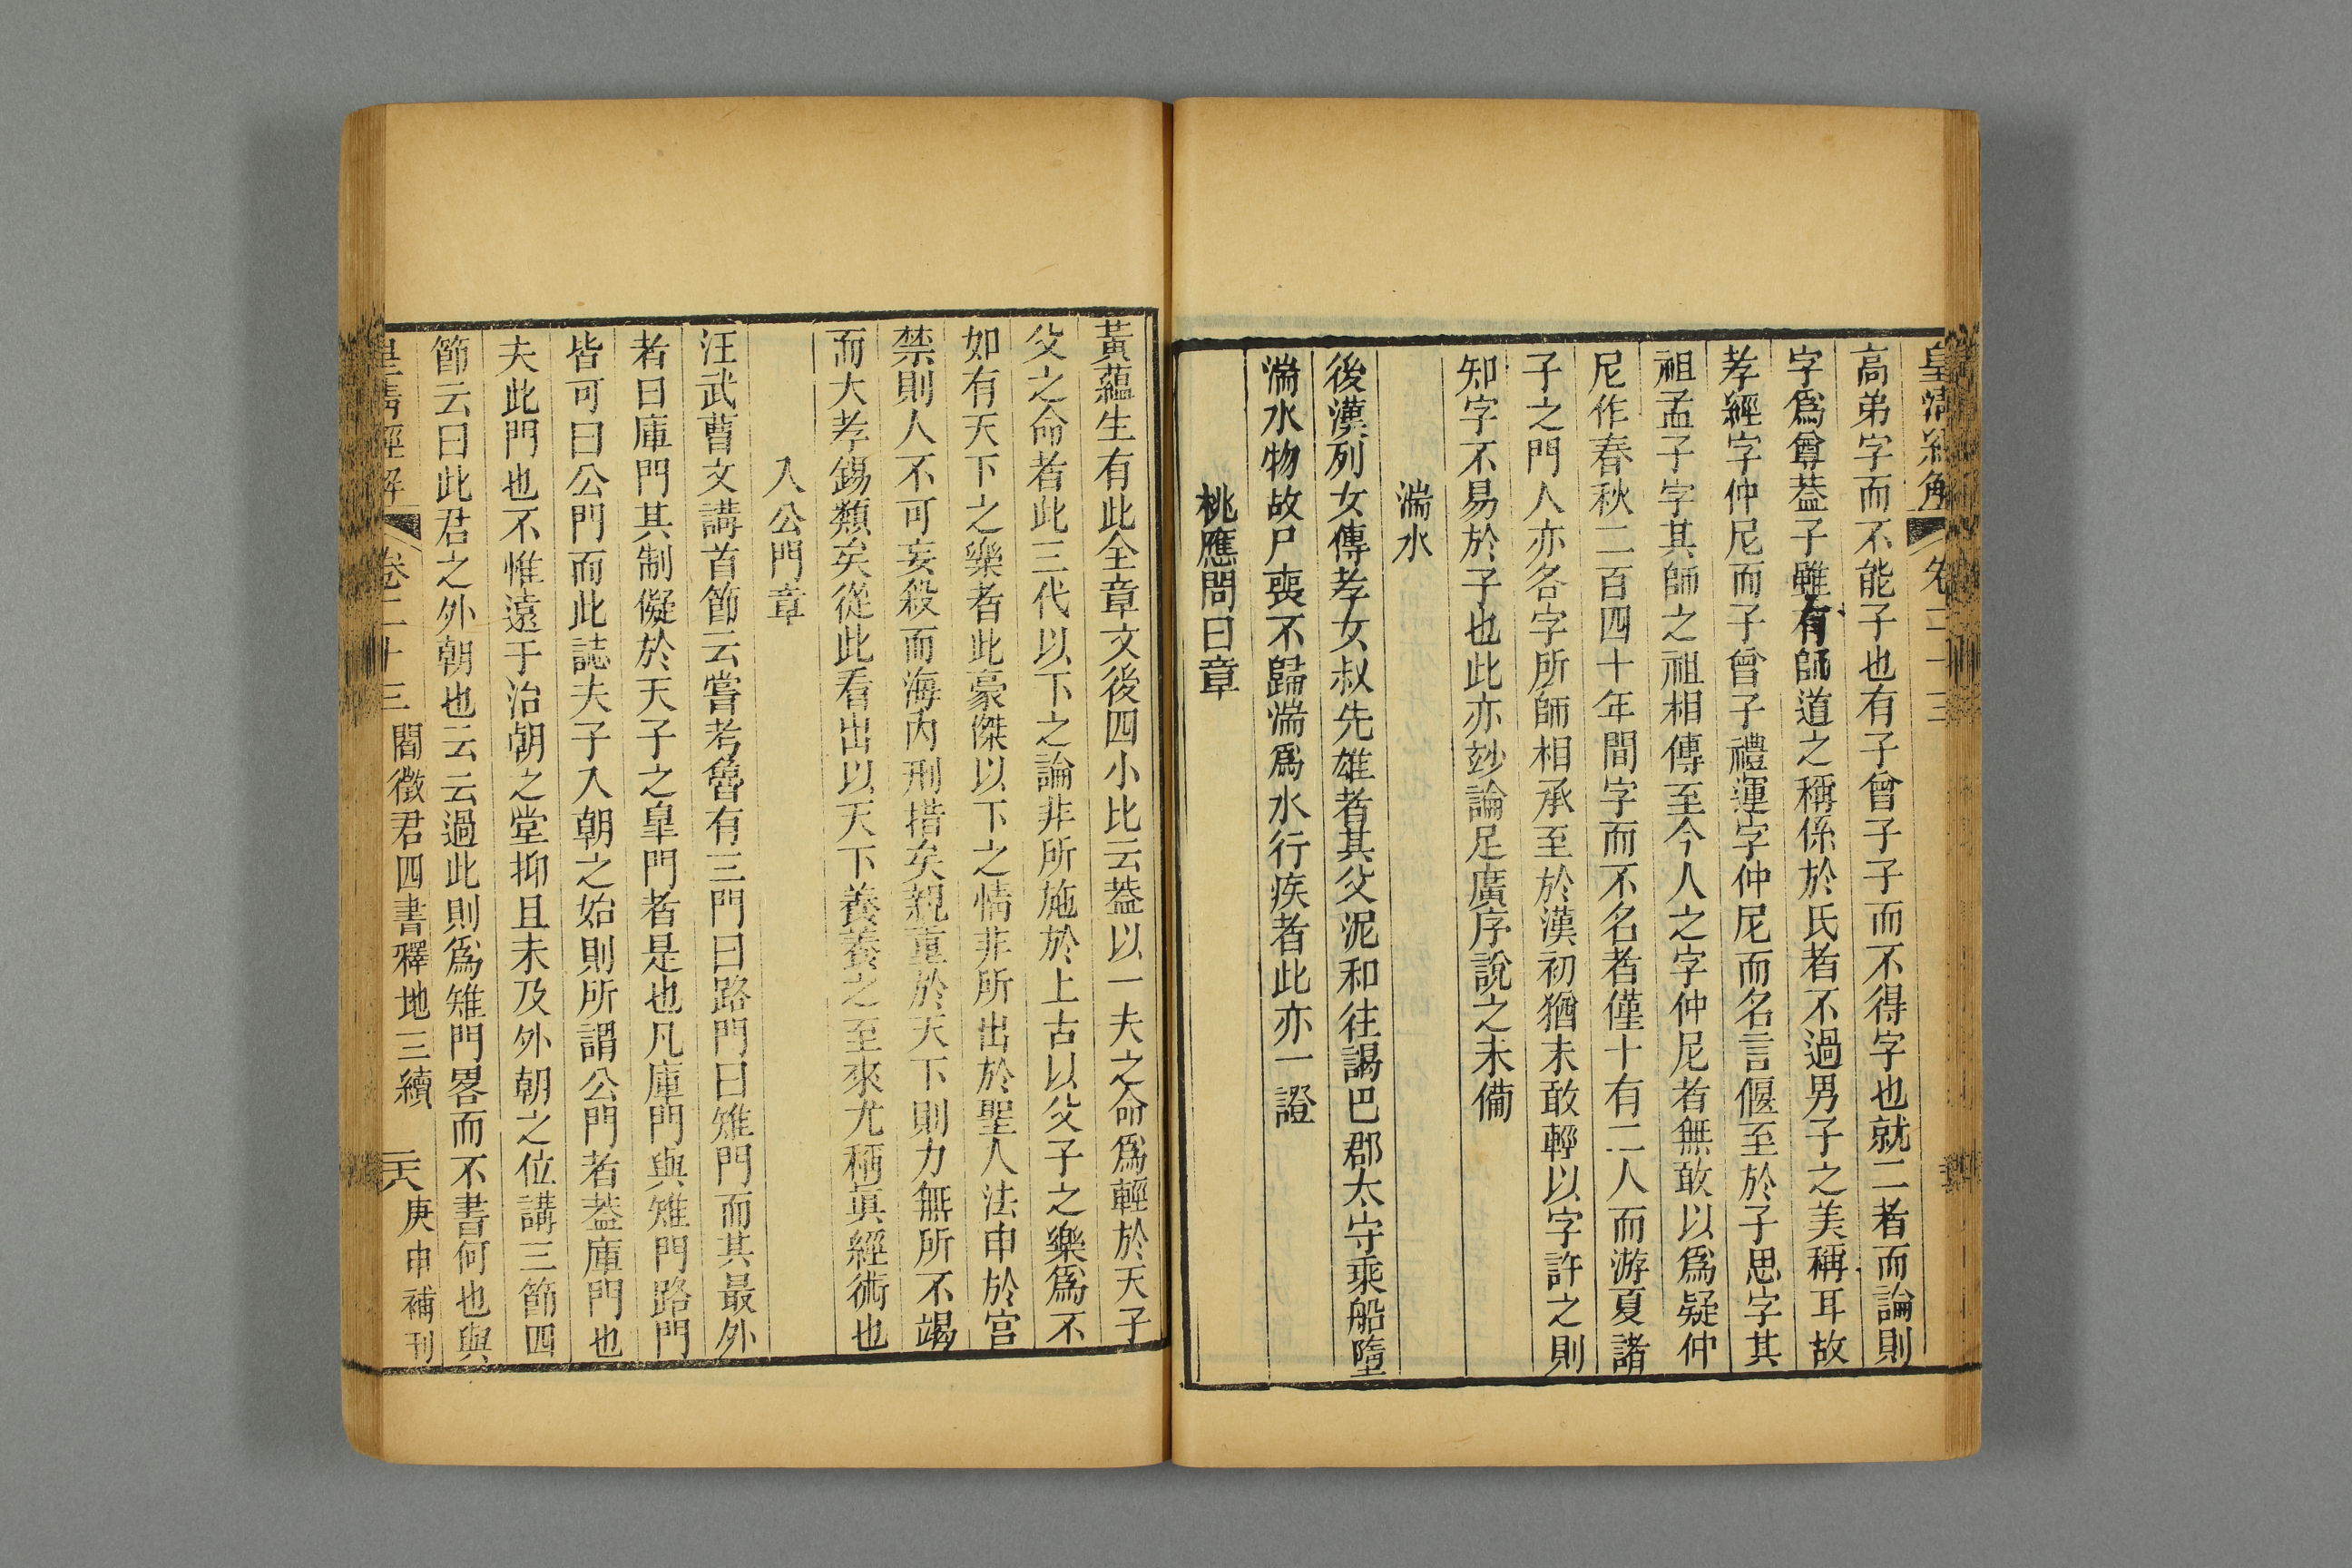 皇清經解 卷二十三
高弟字而不能子也有子曾子子而不得字也就二者而論則
字爲尊葢子雖有師道之稱係於氏者不過男子之美稱耳故
孝經字仲尼而子曾子禮運字仲尼而名言偃至於子思字其
祖孟子字其師之祖相傳至今人之字仲尼者無敢以爲疑仲
尼作春秋二百四十年間字而不名者僅十有二人而游夏諸
子之門人亦各字所師相承至於漢初猶未敢輕以字許之則
知字不易於子也此亦玅論足廣序說之未備
湍水
後漢列女傳孝女叔先雄者其父泥和往謁巴郡太守乘船墮
湍水物故尸喪不歸湍爲水行疾者此亦一證
桃應問曰章
黃蘊生有此全章文後四小比云葢以一夫之命爲輕於天子
父之命者此三代以下之論非所施於上古以父子之樂爲不
如有天下之樂者此豪傑以下之情非所出於聖人法申於宮
禁則人不可妄殺而海內刑措矣親重於天下則力無所不竭
而大孝錫類矣從此看出以天下養養之至來尤稱眞經術也
入公門章
汪武曹文講首節云嘗考魯有三門曰路門曰雉門而其最外
者曰庫門其制儗於天子之皐門者是也凡庫門與雉門路門
皆可曰公門而此誌夫子入朝之始則所謂公門者葢庫門也
夫此門也不惟遠于治朝之堂抑且未及外朝之位講三節四
節云曰此君之外朝也云云過此則爲雉門畧而不書何也與
皇清經解 卷二十三 閻徵君四書釋地三續 庚申補刊